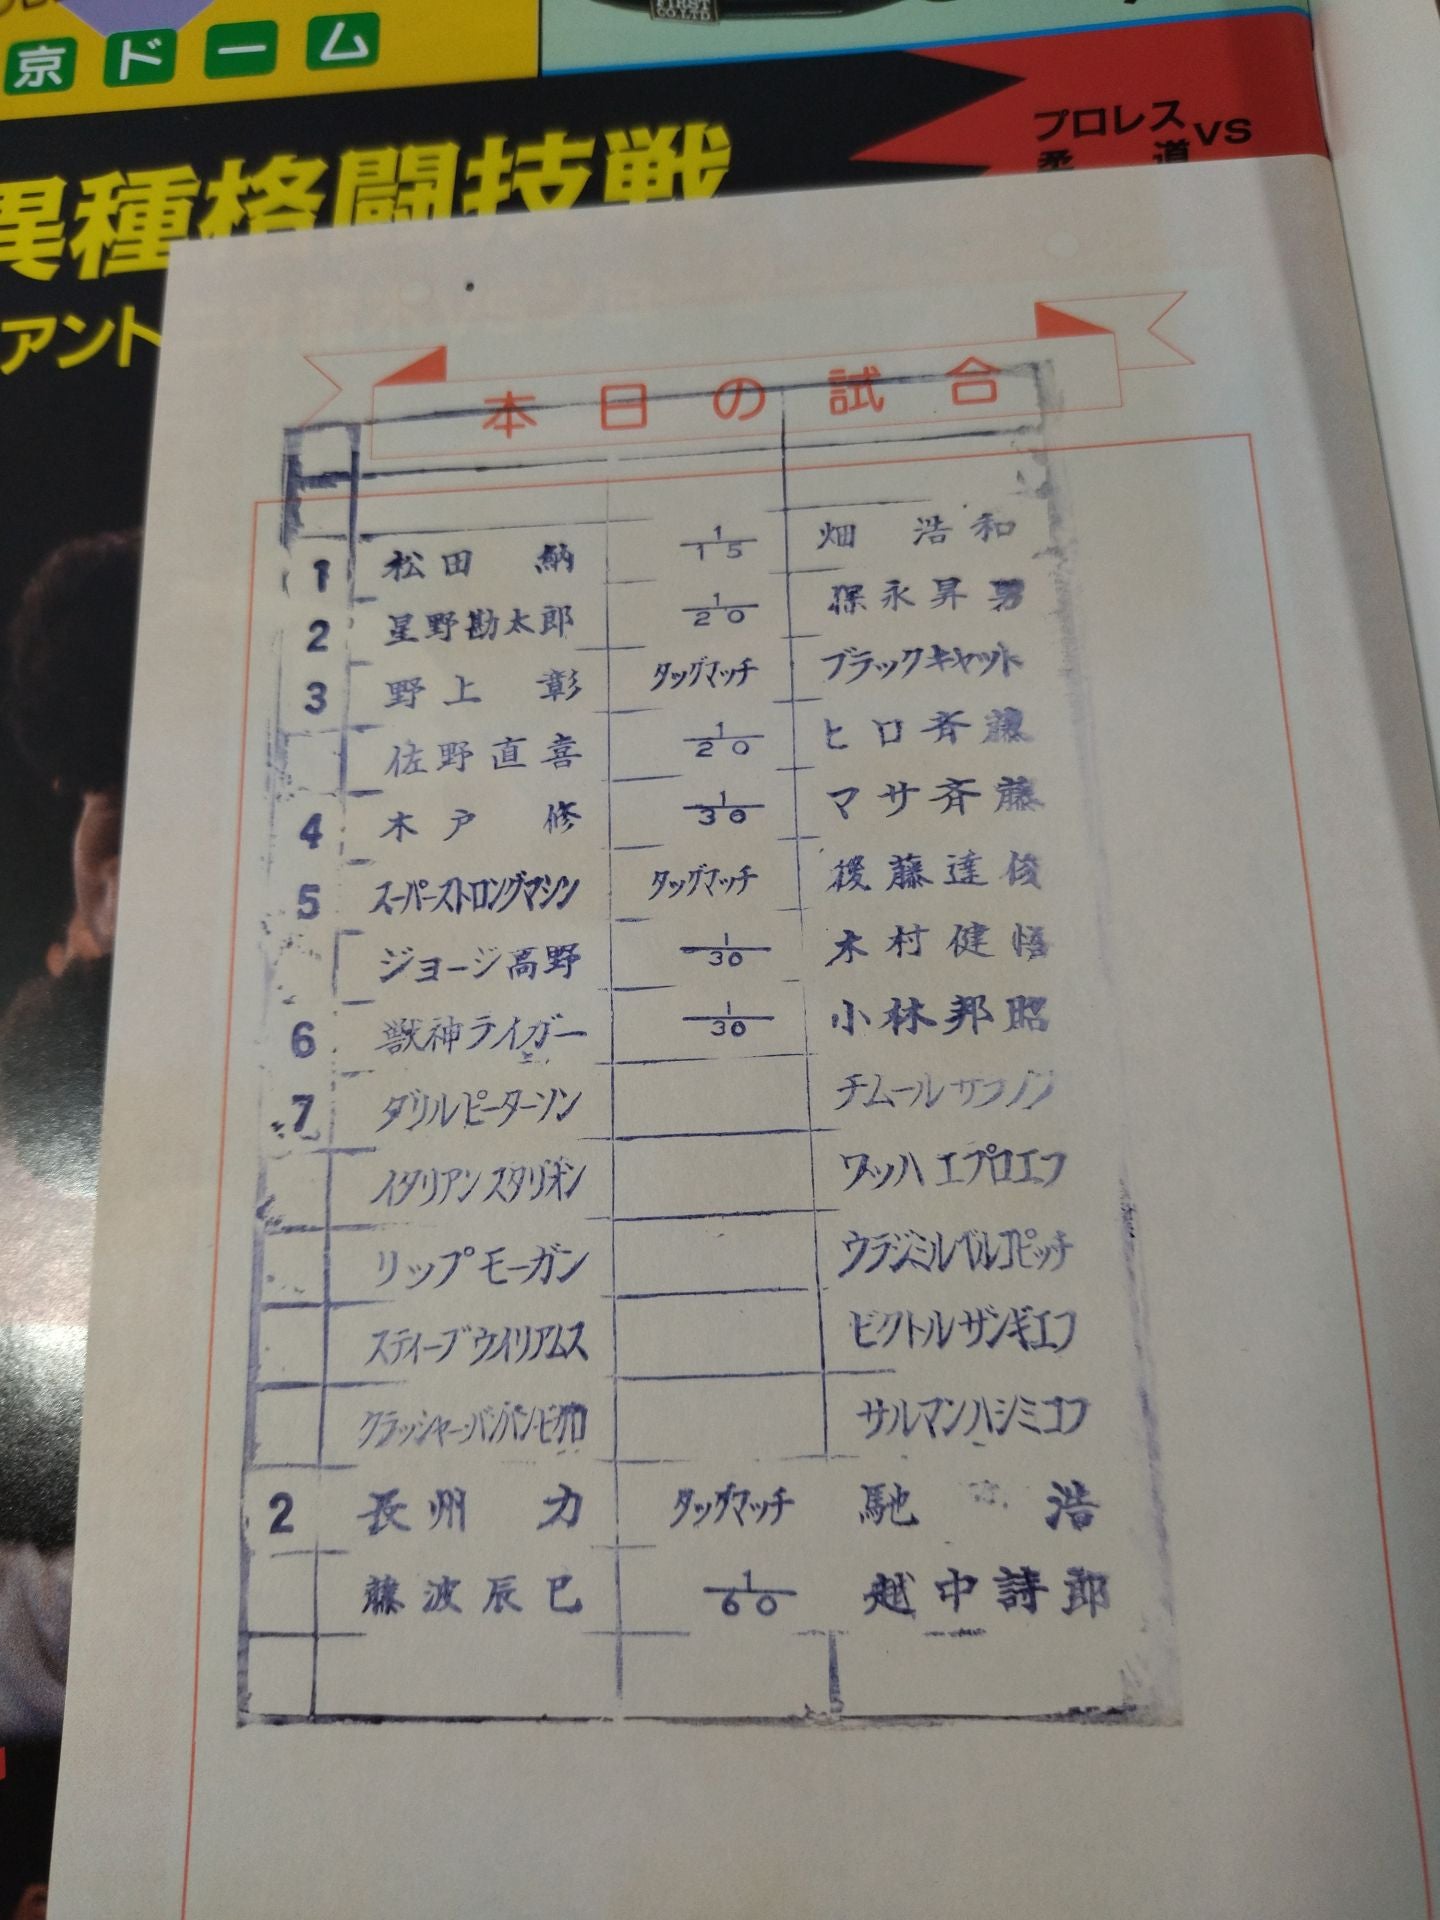 京ドーム
FIRST
CO.LTD
プロレス
柔道 VS
異種格闘技戦
アント
本日の試合
1 松田 納 1/15 畑 浩和
2 星野勘太郎 1/20 保永昇男
3 野上 彰 タッグマッチ ブラックキャット
佐野直喜 1/20 ヒロ斉藤
4 木戸 修 1/30 マサ斉藤
5 スーパーストロングマシン タッグマッチ 後藤達俊
ジョージ高野 1/30 木村健悟
6 獣神ライガー 1/30 小林邦昭
7 ダリルピーターソン チムールザラソフ
イタリアンスタリオン ワッハ エブロエフ
リップモーガン ウラジミルベルコビッチ
スティーブウイリアムス ビクトルザンギエフ
クラッシャー・バンバン・ビガロ サルマンハシミコフ
2 長州 力 タッグマッチ 馳 浩
藤波辰巳 1/60 越中詩郎